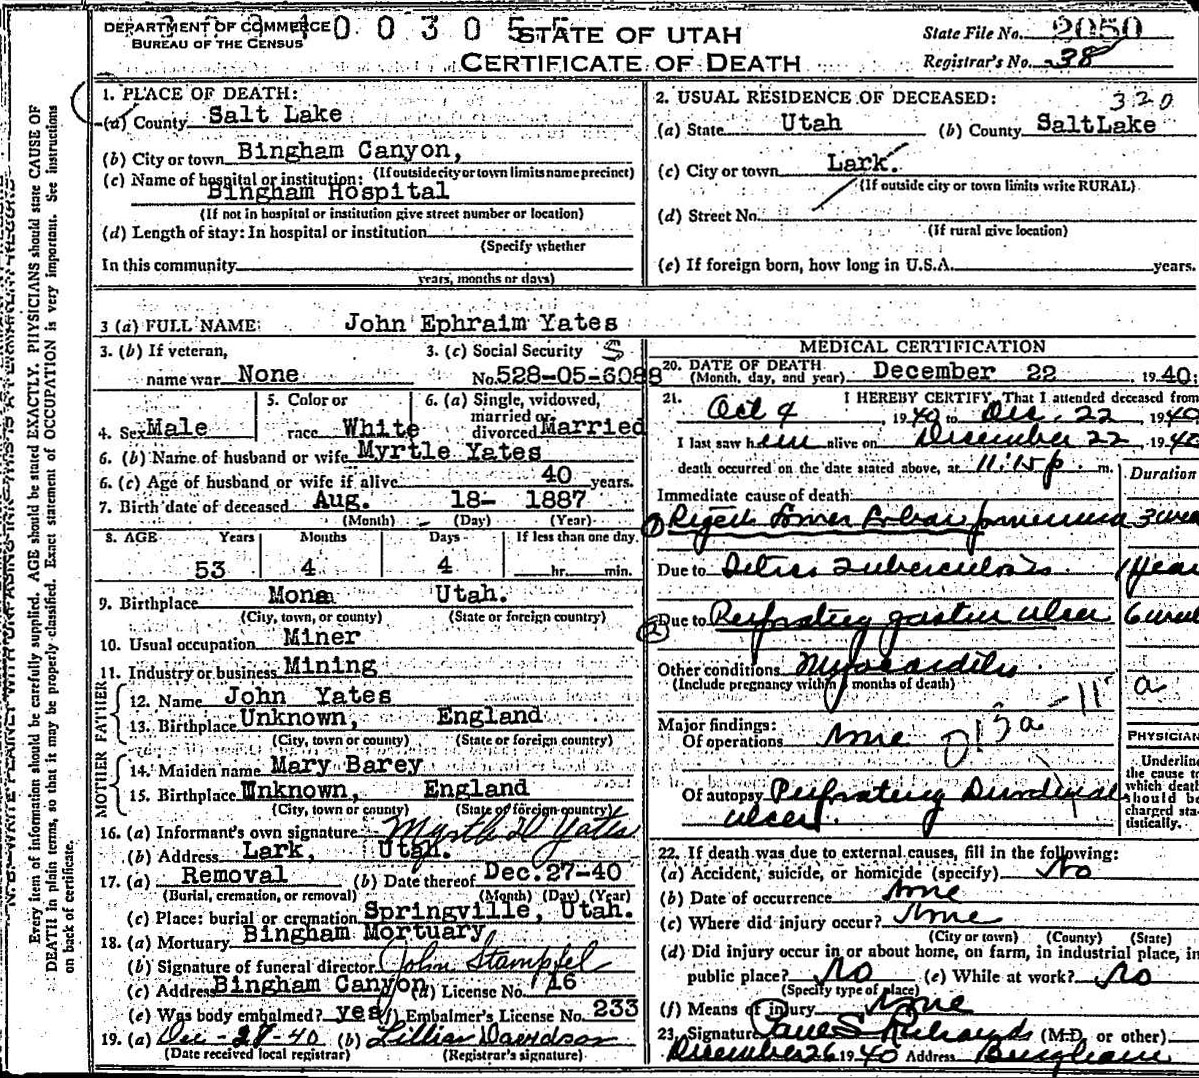 DEPARTMENT OF COMMERCE
BUREAU OF THE CENSUS
0 0 3 0 5
STATE OF UTAH
CERTIFICATE OF DEATH
State File No. 2050
Registrar's No. 38
1. PLACE OF DEATH:
(a) County Salt Lake
(b) City or town Bingham Canyon,
(If outside city or town limits name precinct)
(c) Name of hospital or institution:
Bingham Hospital
(If not in hospital or institution give street number or location)
(d) Length of stay: In hospital or institution
(Specify whether
In this community
years, months or days)
2. USUAL RESIDENCE OF DECEASED: 320
(a) State Utah (b) County SaltLake
(c) City or town Lark.
(If outside city or town limits write RURAL)
(d) Street No.
(If rural give location)
(e) If foreign born, how long in U.S.A. years.
3 (a) FULL NAME: John Ephraim Yates
3. (b) If veteran, name war None
3. (c) Social Security No. 528-05-6088
S
4. Sex Male
5. Color or race White
6. (a) Single, widowed, married or divorced Married
6. (b) Name of husband or wife Myrtle Yates
6. (c) Age of husband or wife if alive 40 years.
7. Birth date of deceased Aug. 18- 1887
(Month) (Day) (Year)
8. AGE Years Months Days If less than one day
53 4 4 hr. min.
9. Birthplace Mona Utah.
(City, town, or county) (State or foreign country)
10. Usual occupation Miner
11. Industry or business Mining
FATHER
12. Name John Yates
13. Birthplace Unknown, England
(City, town or county) (State or foreign country)
MOTHER
14. Maiden name Mary Barey
15. Birthplace Unknown, England
(City, town or county) (State or foreign country)
16. (a) Informant's own signature Myrtle W Yates
(b) Address Lark, Utah.
17. (a) Removal (b) Date thereof Dec. 27-40
(Burial, cremation, or removal) (Month) (Day) (Year)
(c) Place: burial or cremation Springville, Utah.
18. (a) Mortuary Bingham Mortuary
(b) Signature of funeral director John Stampfel
(c) Address Bingham Canyon (d) License No. 116
(e) Was body embalmed? yes (f) Embalmer's License No. 233
19. (a) Dec - 27 - 40 (b) Lillian Davidson
(Date received local registrar) (Registrar's signature)
MEDICAL CERTIFICATION
20. DATE OF DEATH
(Month, day, and year) December 22 1940:
21. I HEREBY CERTIFY, That I attended deceased from
Oct 4 1940 to Dec. 22 1940
I last saw him alive on December 22, 1940
death occurred on the date stated above, at 11:15 p. m.
Duration
Immediate cause of death
1 Right Lower Lobar pneumonia 3
Due to Tuberculosis 1 year
2 Due to Perforating gastric ulcer 6
Other conditions Myocarditis
(Include pregnancy within 3 months of death)
Major findings:
Of operations None
13a - 11
a
Of autopsy Perforating Duodenal
ulcer.
PHYSICIAN
Underline
the cause to
which death
should be
charged sta-
tistically.
22. If death was due to external causes, fill in the following:
(a) Accident, suicide, or homicide (specify) No
(b) Date of occurrence None
(c) Where did injury occur? None
(City or town) (County) (State)
(d) Did injury occur in or about home, on farm, in industrial place, in
public place? No (e) While at work? No
(Specify type of place)
(f) Means of injury None
23. Signature Paul S. Richards (M.D. or other)
December 26 1940 Address Bingham
Every item of information should be carefully supplied. AGE should be stated EXACTLY. PHYSICIANS should state CAUSE OF
DEATH in plain terms, so that it may be properly classified. Exact statement of OCCUPATION is very important. See instructions
on back of certificate.